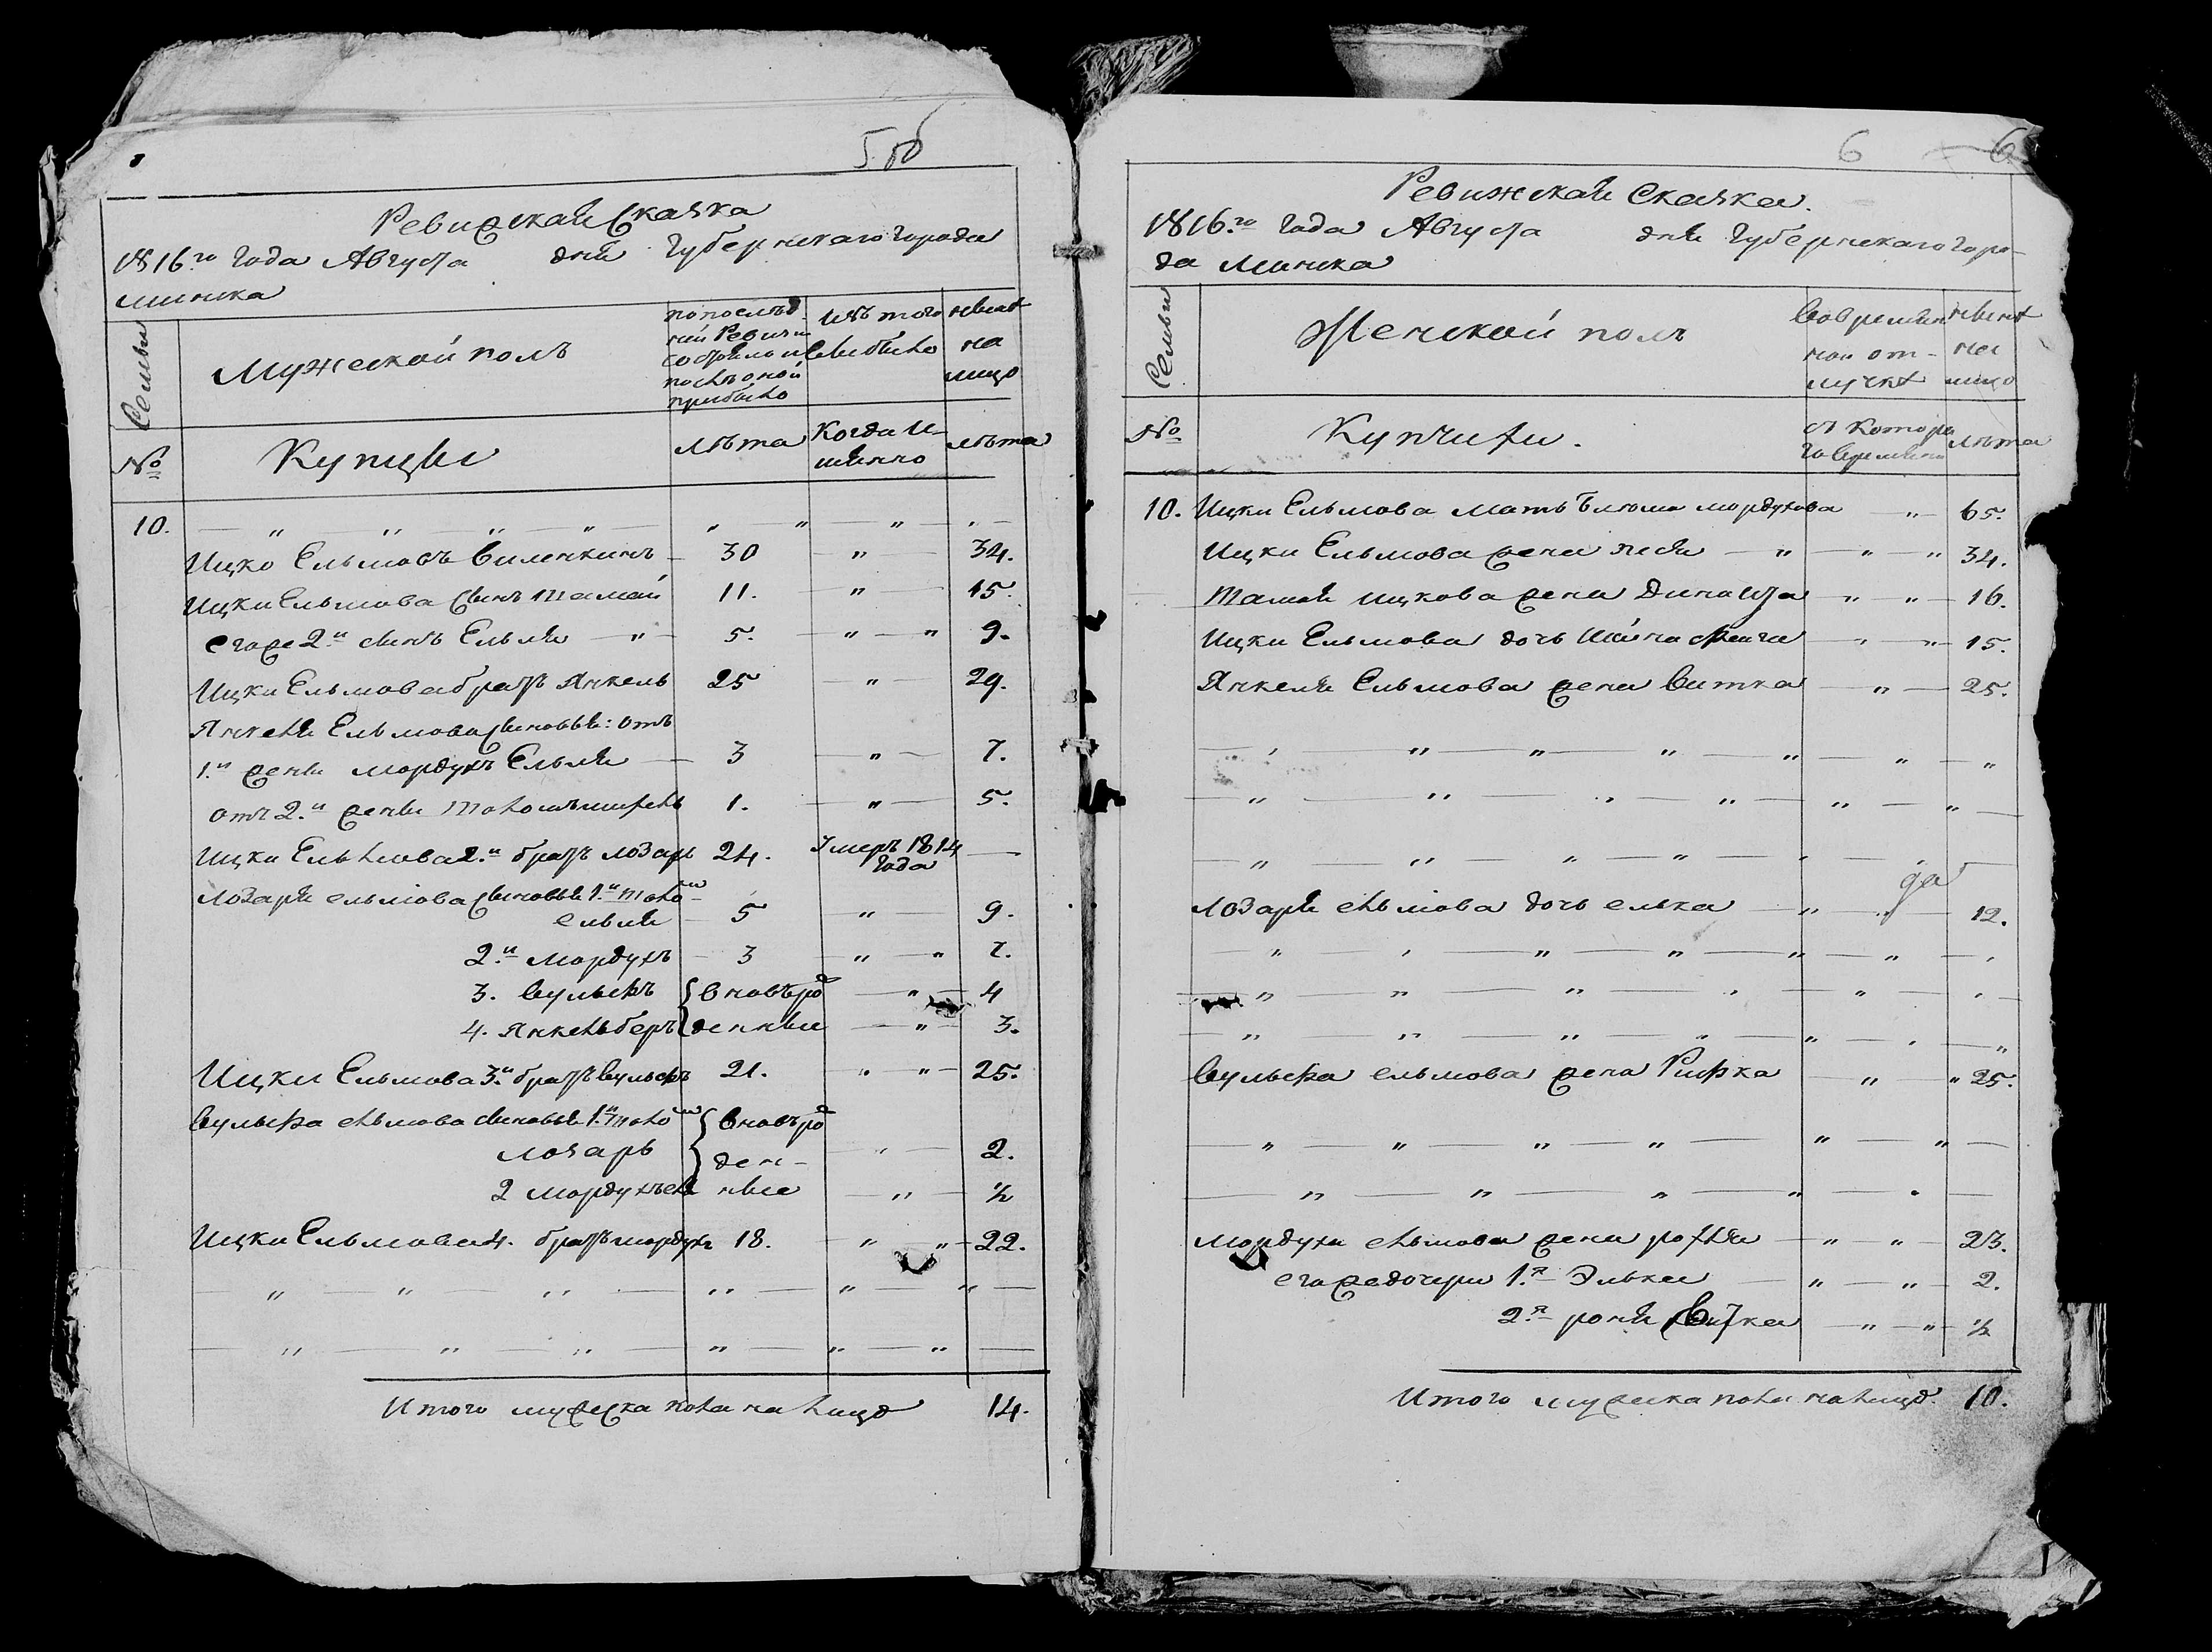 5 об
Ревижская Сказка
1816го года Августа дня Губернскаго города
Минска
Семьи
Мужеской полъ
по послѣд-
ней Ревизии
состояло и
послѣ оной
прибыло
Изъ того
выбыло
ныне
на
лицо
№
Купцы
лѣта
Когда и-
менно
лѣта
10. — " — " — " — " — " — " — " — " —
Ицко Ельмовъ Виленкинъ — 30 — " — 34.
Ицки Ельмова сынъ Тамай 11. — " — 15.
егоже 2й сынъ Ельля — " — 5. — " — " 9.
Ицки Ельмова братъ Янкель 25 — " — 29.
Янкеля Ельмова сыновья: отъ
1й жены Мордухъ Ельля — 3 — " — 7.
отъ 2й жены 1. — " — 5.
Ицки Ельмова 2й братъ Лозарь 24. Умеръ 1814 года —
Лозаря Ельмова сыновья 1й
Ельля — 5 " — 9.
2й Мордухъ — 3 — " — " 7.
3. Вульфъ { вновь рож — " — 4
4. Янкель беръ { денные — " — 3.
Ицки Ельмова 3й братъ Вульфъ 21. " " — 25.
Вульфа Ельмова сыновья 1й { вновь рож
Лозарь } ден- — " — 2.
2 Мордухъ ные — " — ½
Ицки Ельмова 4. братъ Мордухъ 18. — " " — 22.
— " — " — " — " — " — " —
— " — " — " — " — " — " —
Итого мужеска пола на лицо 14.
6 6
Ревижская Сказка.
1816го Года Августа дня Губернскаго Горо-
да Минска
Семьи
Женской полъ
Во времян
ной от-
лучкѣ
ныне
на
лицо
№
Купчихи.
съ котора
го времяни
лѣта
10. Ицки Ельмова мать Блюма Мордухова — " — 65.
Ицки Ельмова жена Песя — " — " — " 34.
Тамая Ицкова жена " — " — 16.
Ицки Ельмова дочь — " — " — 15.
Янкеля Ельмова жена Витка — " — 25.
— " — " — " — " — " — " — "
— " — " — " — " — " — " —
— " — " — " — " — " — " —
да
Лозаря Ельмова дочь Елька — " — " — 12.
— " — " — " — " — " — " — "
— " — " — " — " — " — " —
— " — " — " — " — " — " — "
Вульфа Ельмова жена Рифка — " — " 25.
— " — " — " — " — " — " —
— " — " — " — " — " —
Мордуха Ельмова жена Рохля — " — " — 23.
егоже дочери 1я Элька " — " — 2.
2я Роня Витка — " — " — ½
Итого мужеска пола на лицо. 10.